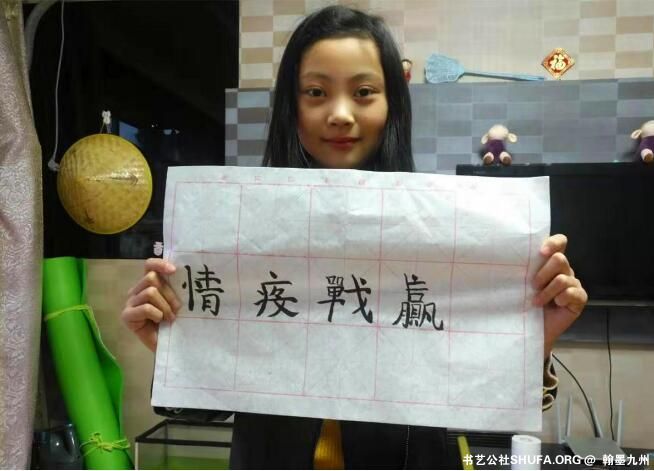 福
赢戰疫情
书艺公社SHUFA.ORG @ 翰墨九州